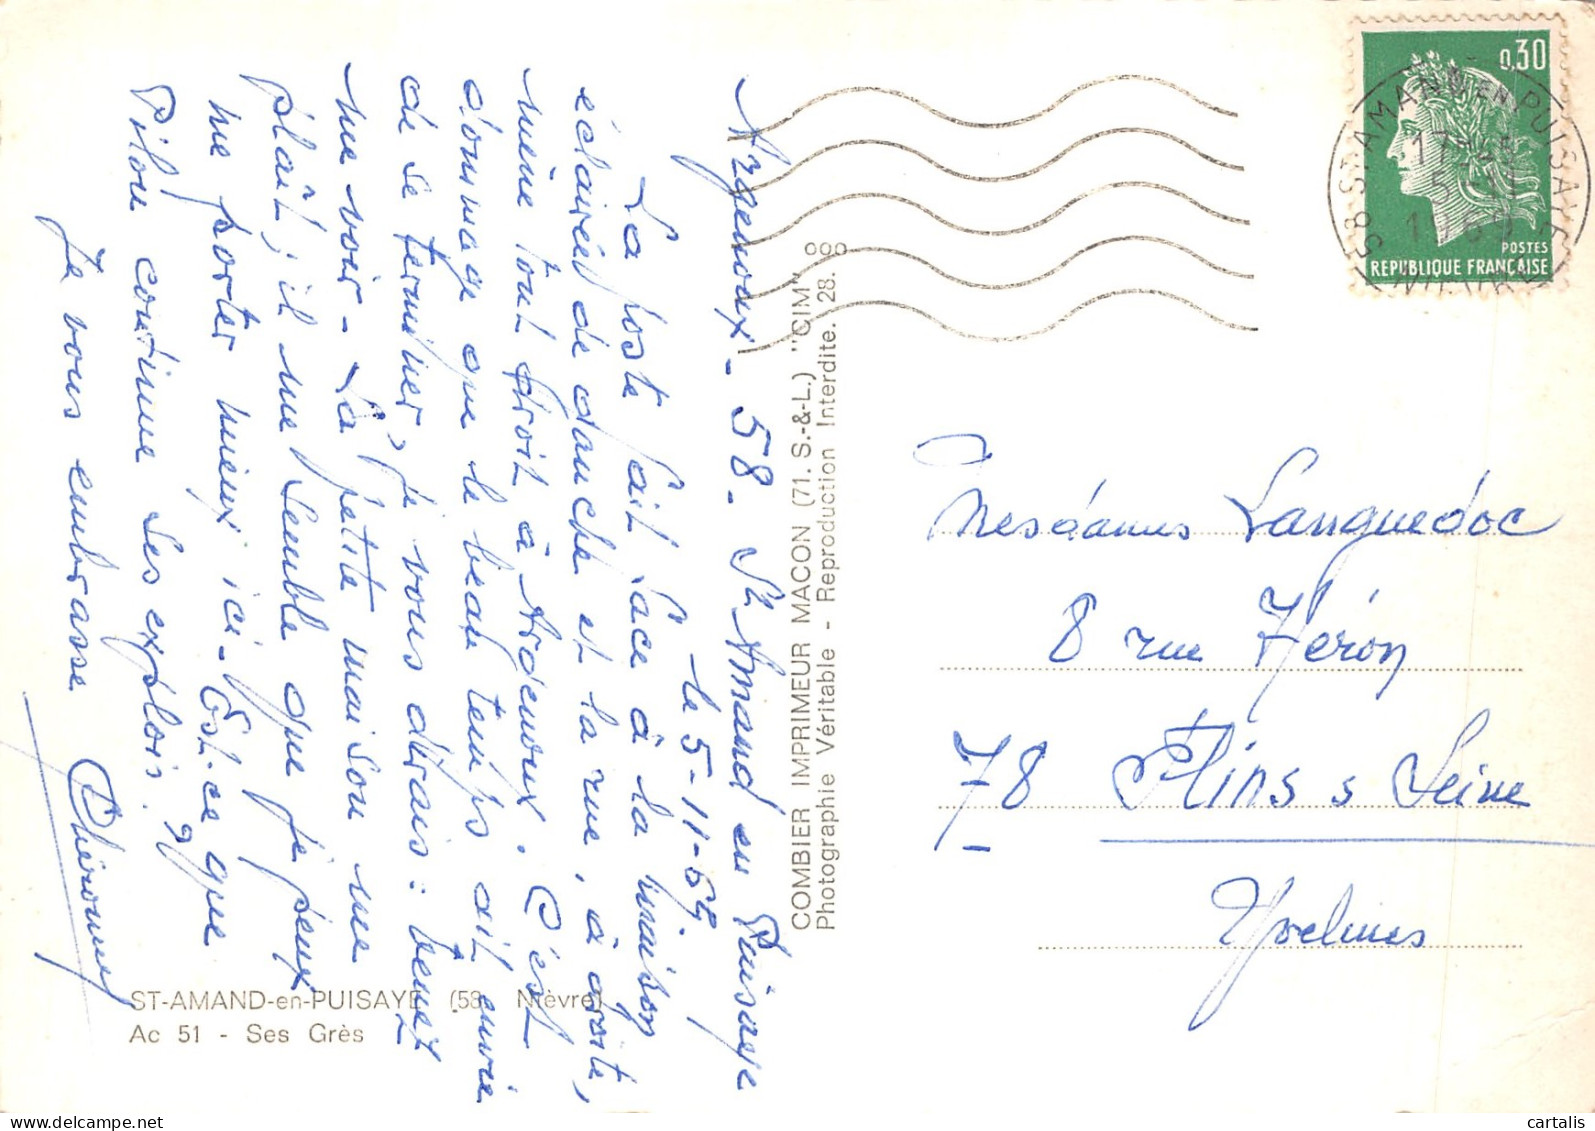 Argenoux - 58 - St Amand en Puisaye
le 5-11-69
La poste fait face à la maison
éclairée de gauche et la rue, à droite,
mène tout droit à Argenoux. C'est
dommage que le beau temps ait envie
de se terminer, je vous dirais : venez
me voir - La petite maison me
plaît ; il me semble que je peux
me porter mieux ici - Est-ce que
Pilou continue ses exploits ?
Je vous embrasse
ST-AMAND-en-PUISAYE (58 Nièvre)
Ac 51 - Ses Grès
COMBIER IMPRIMEUR MACON (71. S.-&-L.) "CIM"
Photographie Véritable - Reproduction Interdite. 28.
0,30
POSTES
REPUBLIQUE FRANÇAISE
58 ST AMAND EN PUISAYE
NIEVRE
17H
5-11
1969
Mesdames Languedoc
8 rue Héron
78 Flins s Seine
Yvelines
cartalis